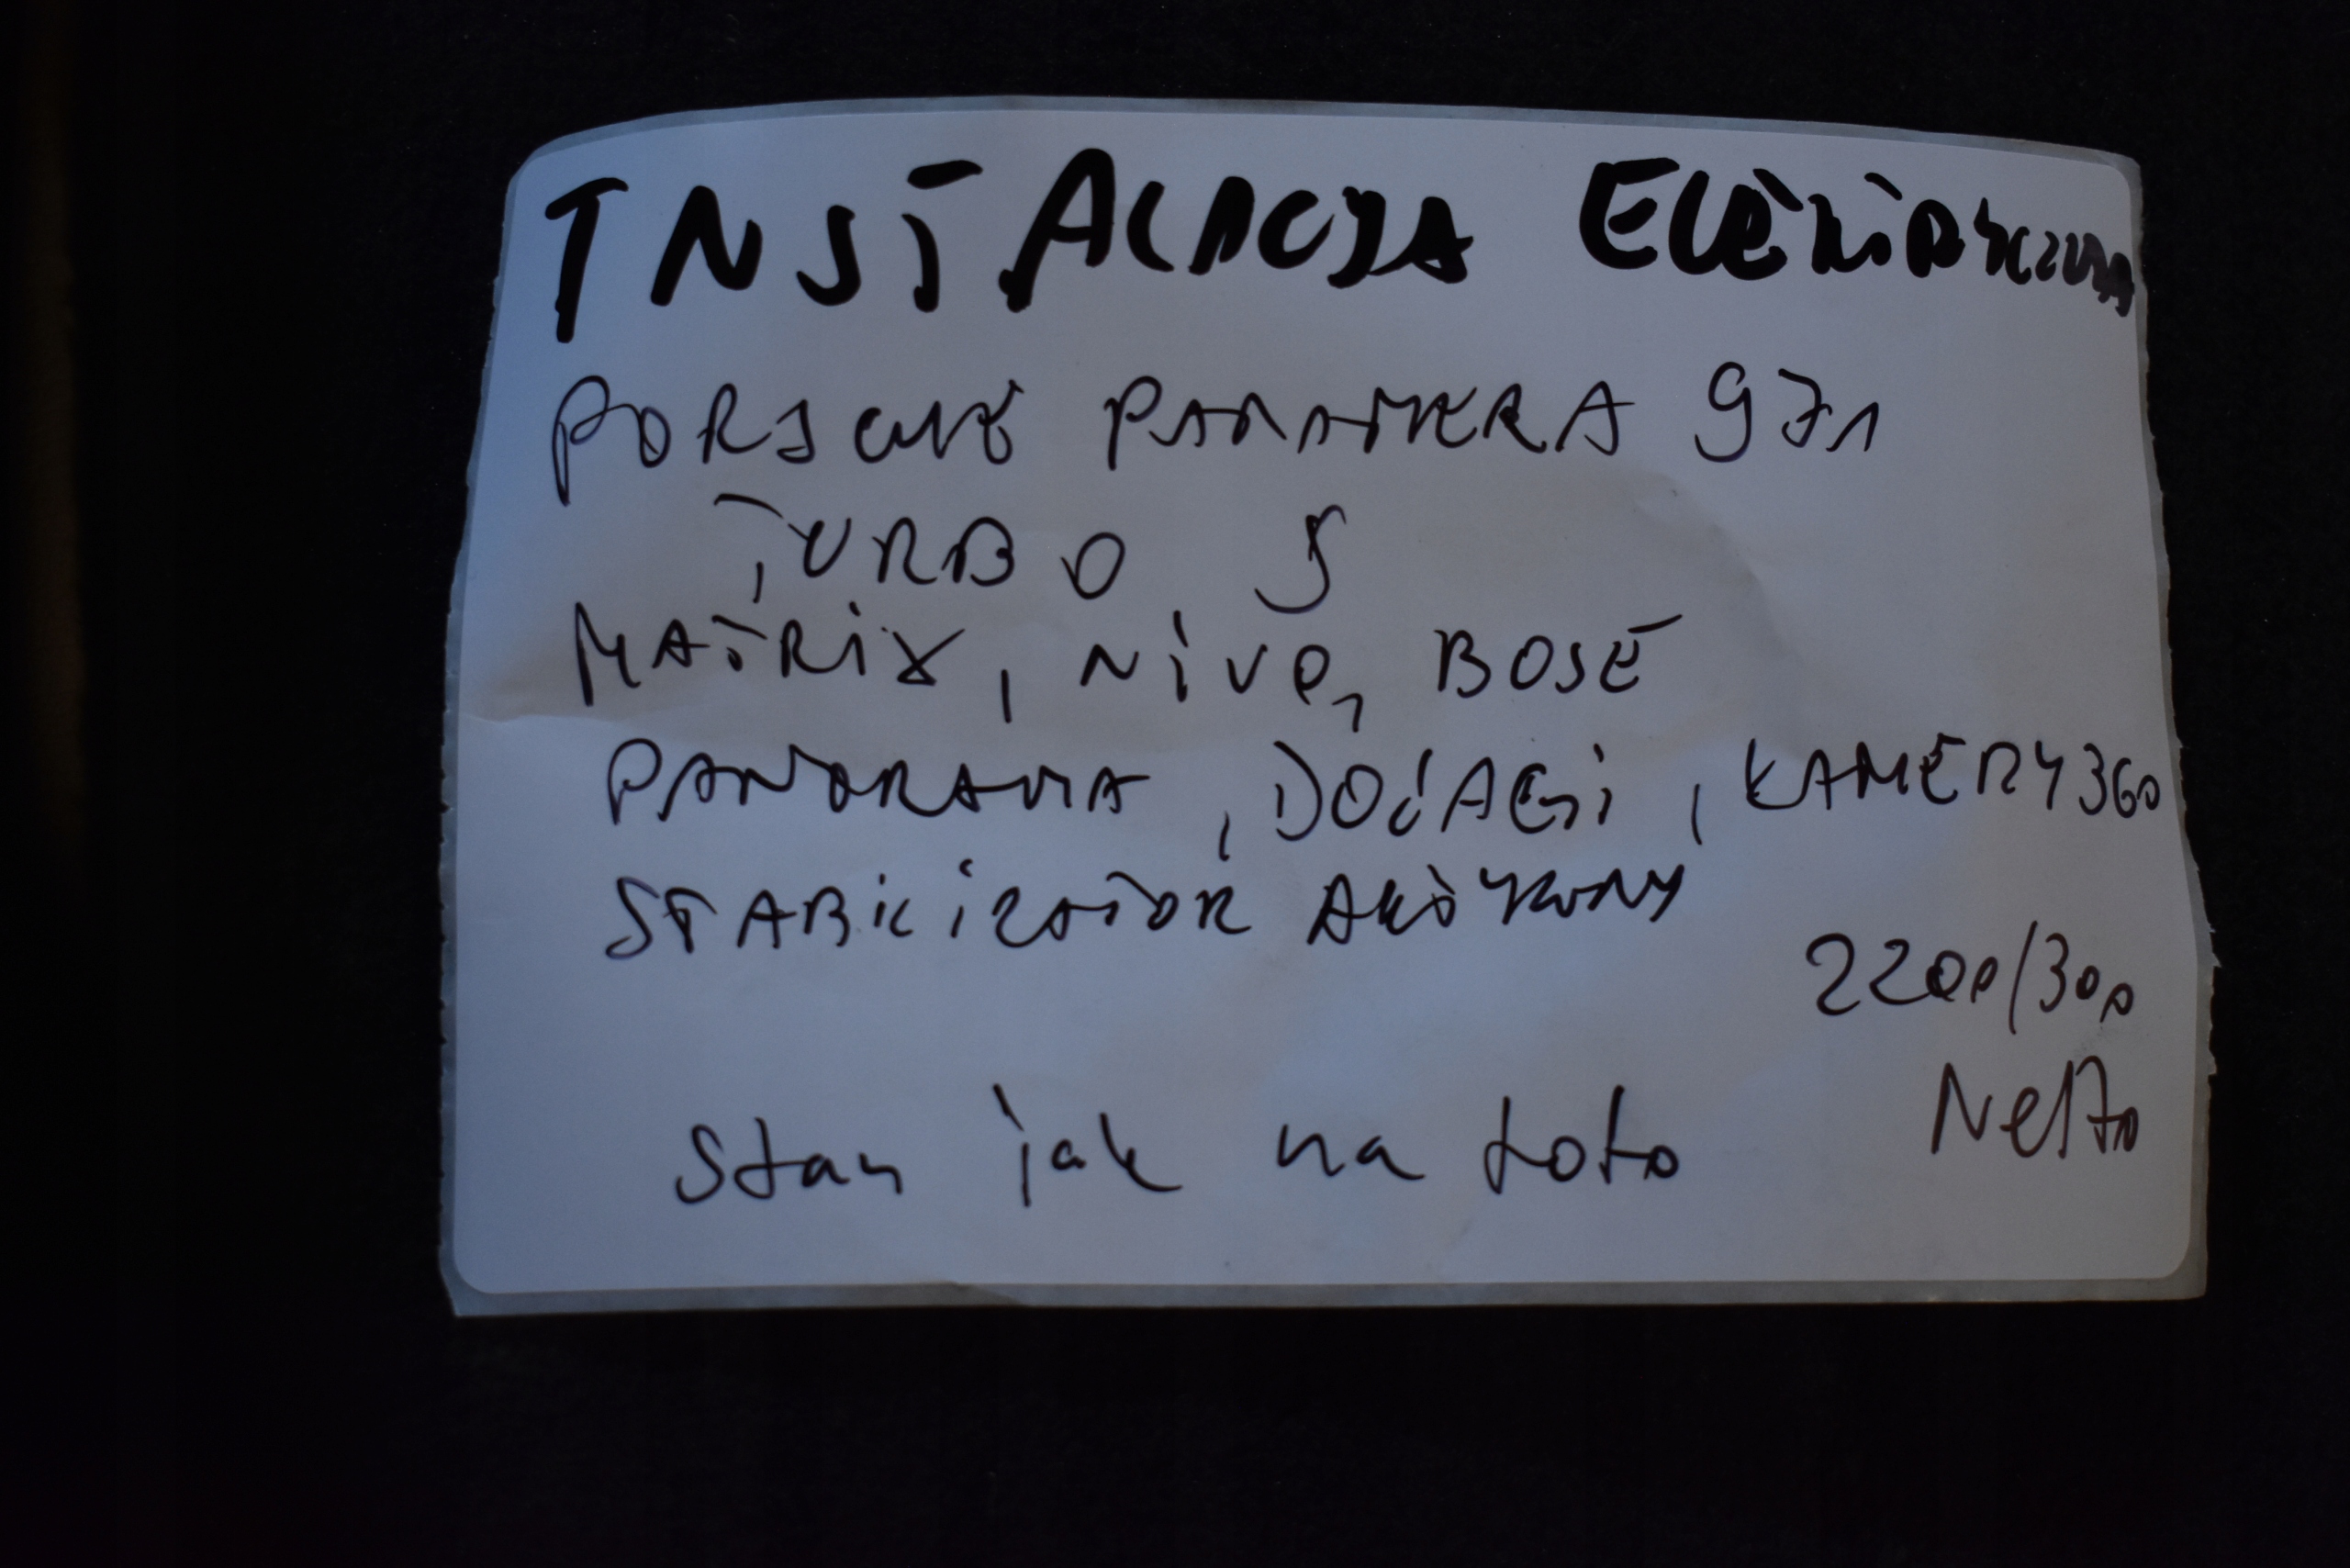 INSTALACJA ELEKTRYCZNA
PORSCHE PANAMERA 971
TURBO S
MATRIX, NIVO, BOSE
PANORAMA, DOCIĄGI, KAMERY 360
STABILIZATOR AKTYWNY
2200/300
Netto
Stan jak na foto